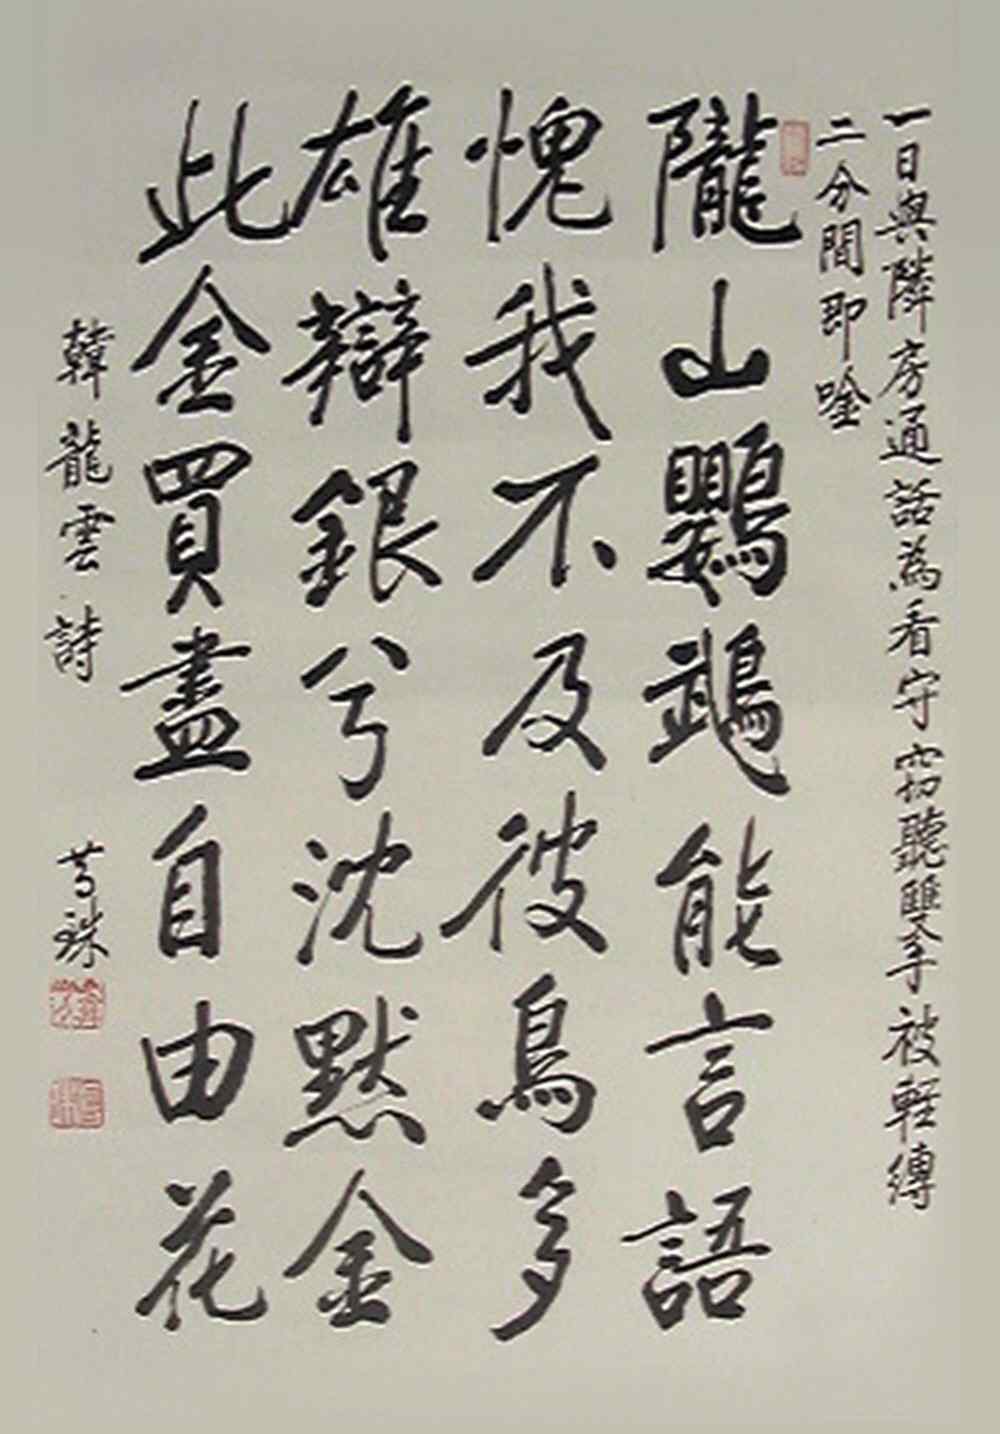 一日與隣房通話為看守窃聽雙手被軽縛
二分間即唫
隴山鸚鵡能言語
愧我不及彼鳥多
雄辯銀兮沈默金
此金買盡自由花
韓龍雲詩